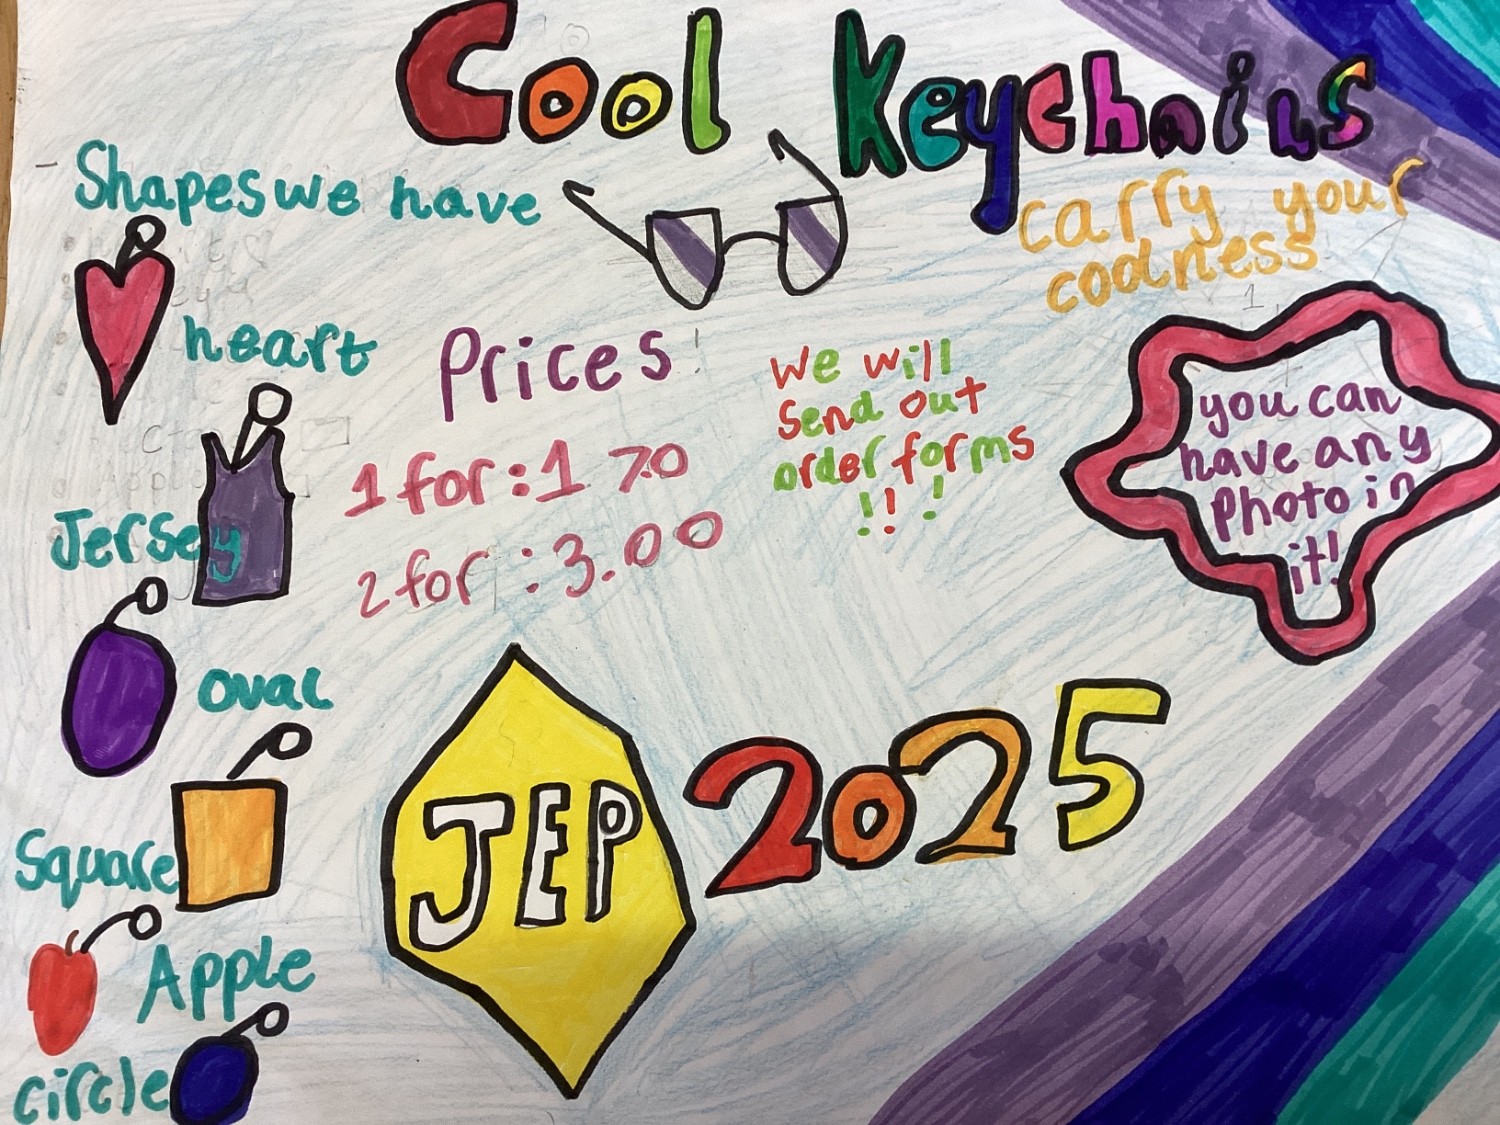 Cool Keychains
carry your
coolness
Shapes we have
heart
Jersey
oval
Square
Apple
circle
Prices
1 for : 1 70
2 for : 3.00
We will
Send out
order forms
!! !
you can
have any
Photo in
it!
JEP 2025